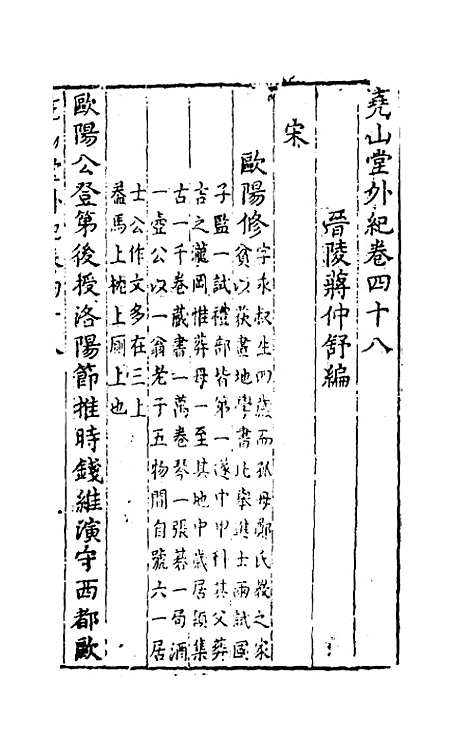 堯山堂外紀卷四十八
晉陵蔣仲舒編
宋
歐陽修
字永叔生四歲而孤母鄭氏教之家
貧以荻畫地學書凡舉進士兩試國
子監一試禮部皆第一遂中甲科其父葬
吉之瀧岡惟葬母一至其地中歲居潁集
古一千卷藏書一萬卷琴一張碁一局酒
一壺公以一翁老于五物間自號六一居
士公作文多在三上
葢馬上枕上厠上也
歐陽公登第後授洛陽節推時錢維演守西都歐